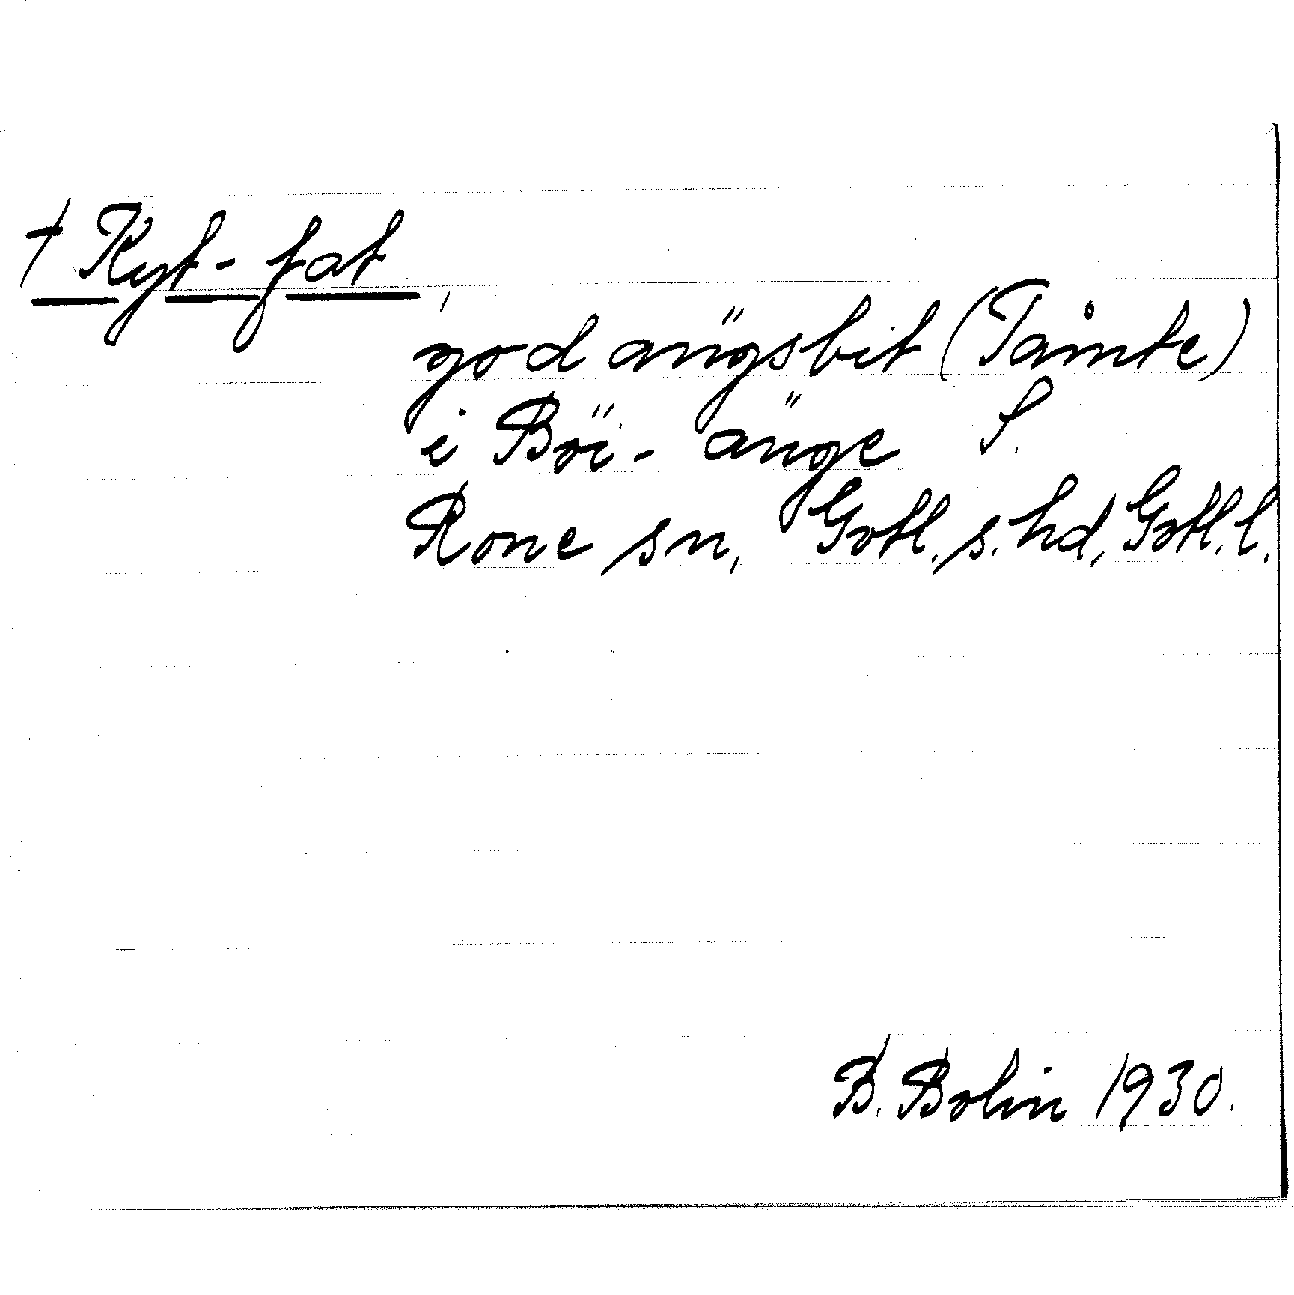 † Kyt-fat,
god ängsbit (Tåmte)
i Böi-änge S.
Rone sn, Gotl. s. hd, Gotl. l.
B. Bolin 1930.